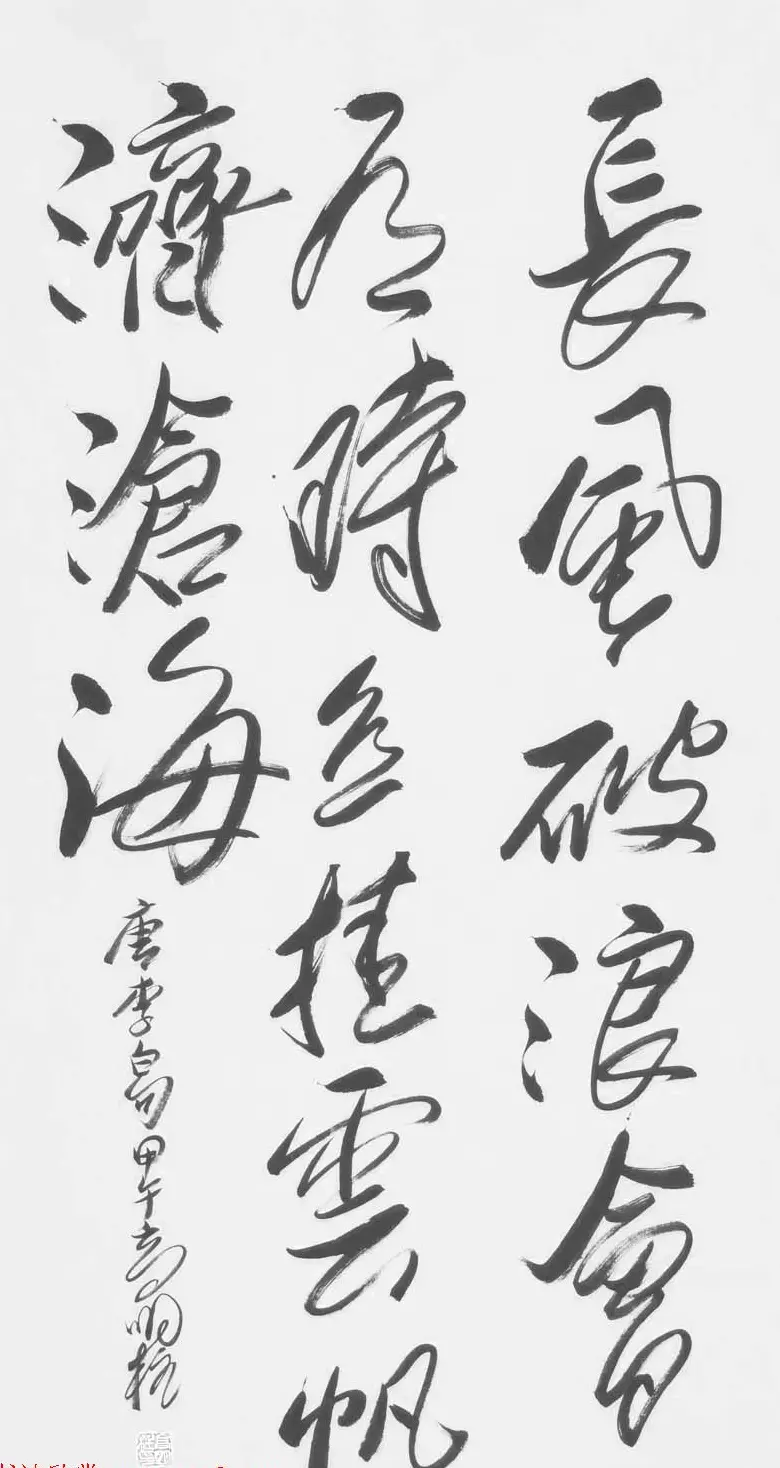 長風破浪會
有時直挂雲帆
濟滄海
唐李白句甲午高明柱